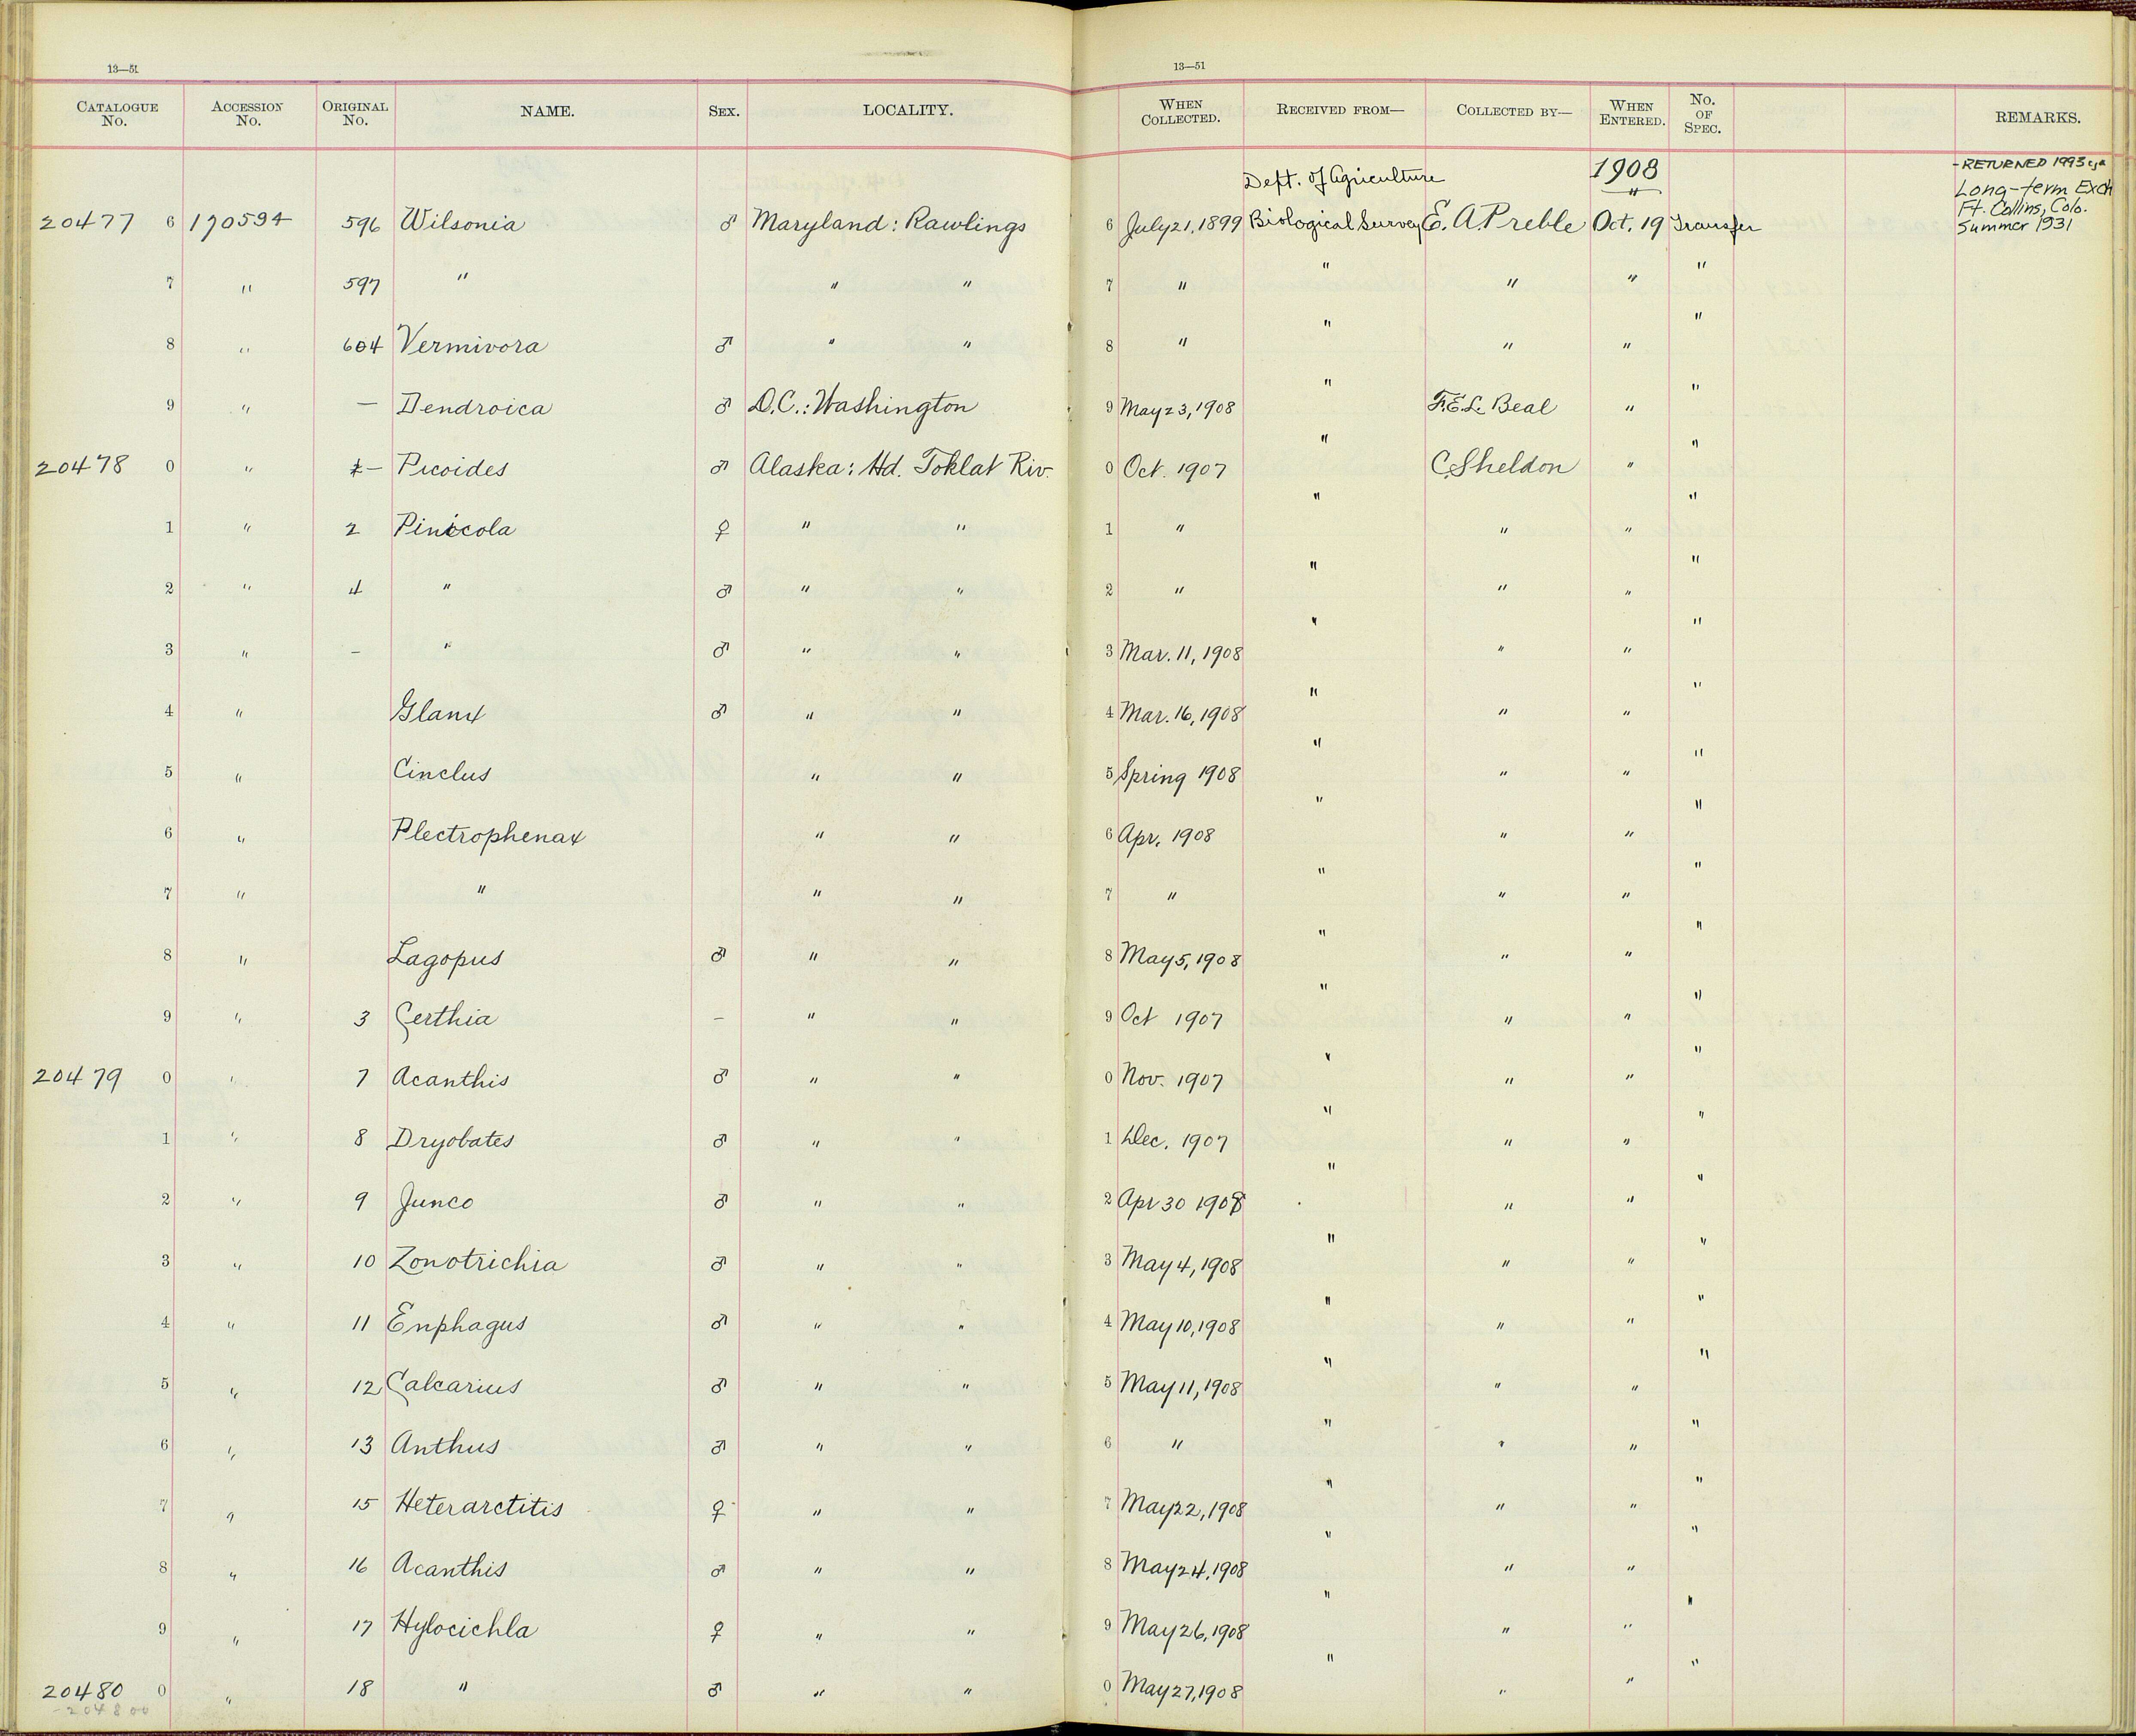 13—51
13—51
CATALOGUE No. ACCESSION No. ORIGINAL No. NAME. SEX. LOCALITY. WHEN COLLECTED. RECEIVED FROM— COLLECTED BY— WHEN ENTERED. No. OF SPEC. REMARKS.
Dept. of Agriculture 1908 -RETURNED 1993
" Long-term Exch
Ft. Collins, Colo.
20477 6 190594 596 Wilsonia ♂ Maryland: Rawlings 6 July 21, 1899 Biological Survey E. A. Preble Oct. 19 Transfer Summer 1931
7 " 597 " " " 7 " " " " "
8 " 604 Vermivora ♂ " " 8 " " " " "
9 " — Dendroica ♂ D.C.: Washington 9 May 23, 1908 " F.E.L. Beal " "
20478 0 " — Picoides ♂ Alaska: Hd. Toklat Riv. 0 Oct. 1907 " C. Sheldon " "
1 " 2 Pinicola ♀ " " 1 " " " " "
2 " 4 " ♂ " " 2 " " " " "
3 " – " ♂ " " 3 Mar. 11, 1908 " " " "
4 " Glanx ♂ " " 4 Mar. 16, 1908 " " " "
5 " Cinclus " " 5 Spring 1908 " " " "
6 " Plectrophenax " " 6 Apr. 1908 " " " "
7 " " " " 7 " " " " "
8 " Lagopus ♂ " " 8 May 5, 1908 " " " "
9 " 3 Certhia – " " 9 Oct 1907 " " " "
20479 0 " 7 Acanthis ♂ " " 0 Nov. 1907 " " " "
1 " 8 Dryobates ♂ " " 1 Dec. 1907 " " " "
2 " 9 Junco ♂ " " 2 Apr 30 1908 " " " "
3 " 10 Zonotrichia ♂ " " 3 May 4, 1908 " " " "
4 " 11 Euphagus ♂ " " 4 May 10, 1908 " " " "
5 " 12 Calcarius ♂ " " 5 May 11, 1908 " " " "
6 " 13 Anthus ♂ " " 6 " " " " "
7 " 15 Heteractitis ♀ " " 7 May 22, 1908 " " " "
8 " 16 Acanthis ♂ " " 8 May 24, 1908 " " " "
9 " 17 Hylocichla ♀ " " 9 May 26, 1908 " " " "
20480 0 " 18 " ♂ " " 0 May 27, 1908 " " " "
-204800